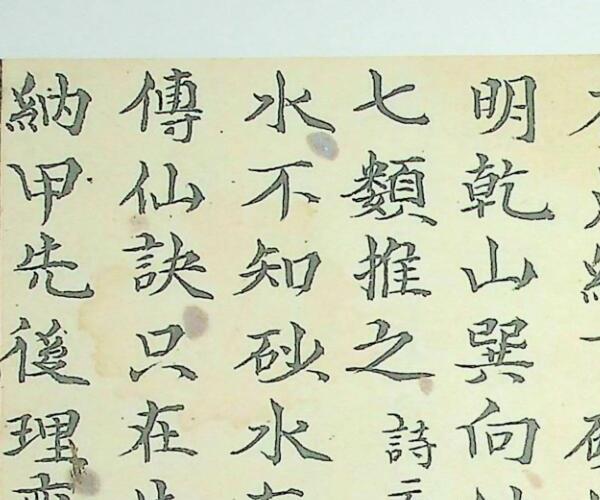 明乾山巽向
七類推之詩
水不知砂水
傳仙訣只在
納甲先後理